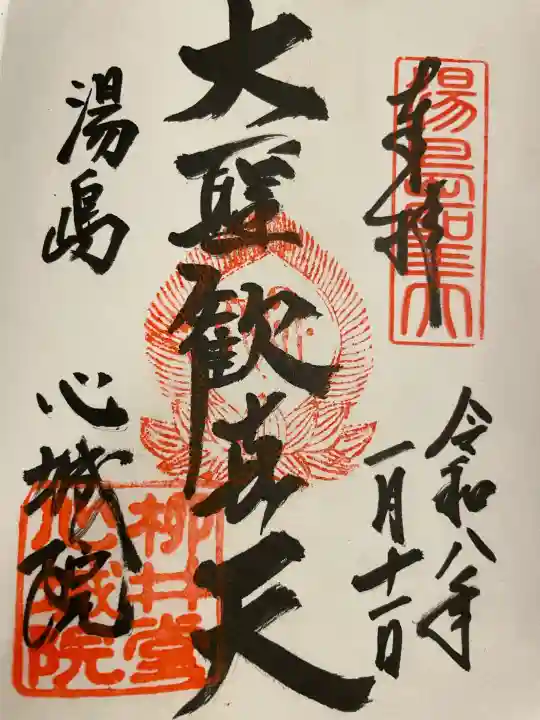 奉拝
湯島聖天
令和八年
一月十一日
大聖歓喜天
湯島
心城院
柳井堂
心城院